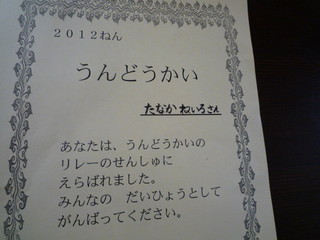 2012ねん
うんどうかい
たなか ねいろさん
あなたは、うんどうかいの
リレーのせんしゅに
えらばれました。
みんなの だいひょうとして
がんばってください。